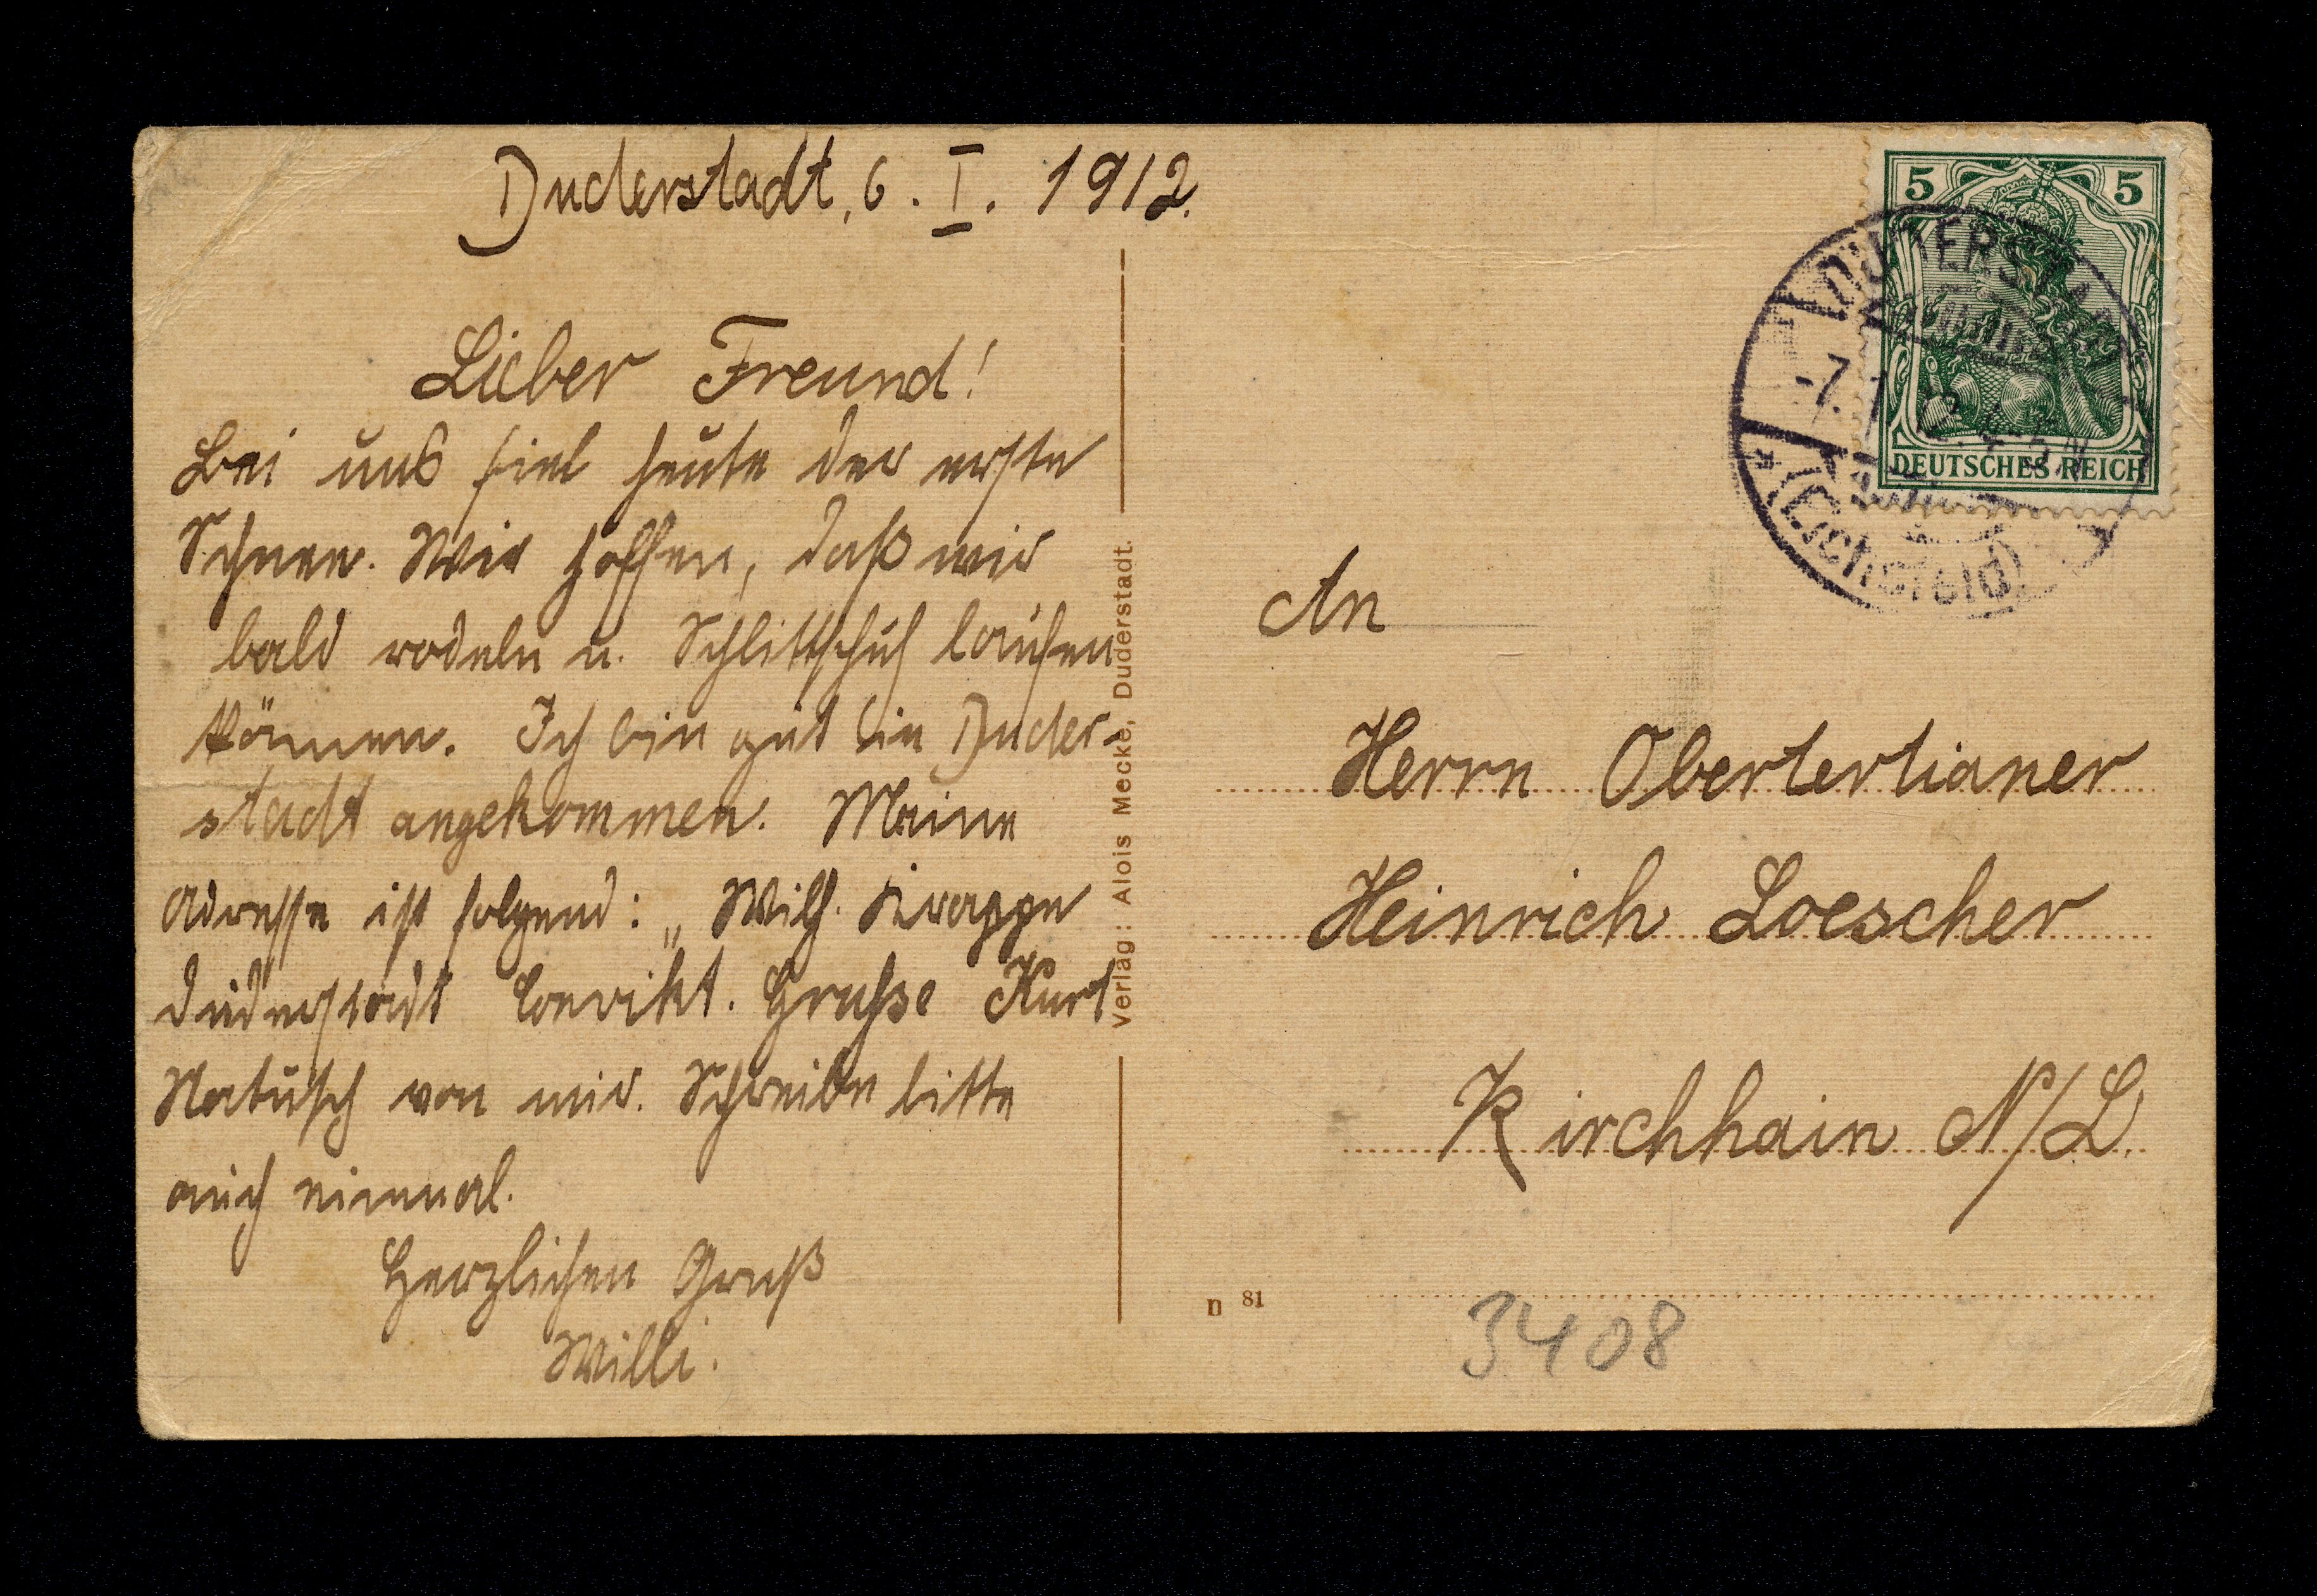 Duderstadt, 6. I. 1912.
Lieber Freund!
Bei uns fiel heute der erste
Schnee. Wir hoffen, daß wir
bald rodeln u. Schlittschuh laufen
können. Ich bin gut in Duder-
stadt angekommen. Meine
Adresse ist folgend: „Wilh.
Duderstadt Convikt. Grüsse Kurt
Natusch von mir. Schreibe bitte
auch einmal.
Herzlichen Gruß
Willi.
Verlag: Alois Mecke, Duderstadt.
5 5
DEUTSCHES REICH
DUDERSTADT
-7.1.12.
* (Eichsfeld)
An
Herrn Obertertianer
Heinrich Loescher
Kirchhain N/L.
n 81
3408